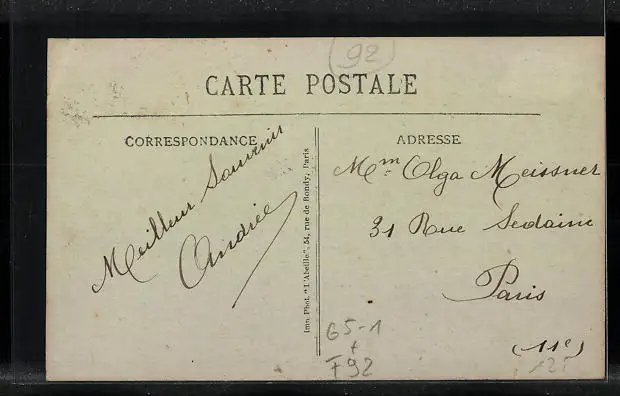 (92)
CARTE POSTALE
CORRESPONDANCE
Meilleur Souvenir
Andrée
Imp. Phot. "l'Abeille". 54, rue de Bondy, Paris
ADRESSE
Mme Olga Meissner
31 Rue Sedaine
Paris
(11e)
G5-1
+
F92